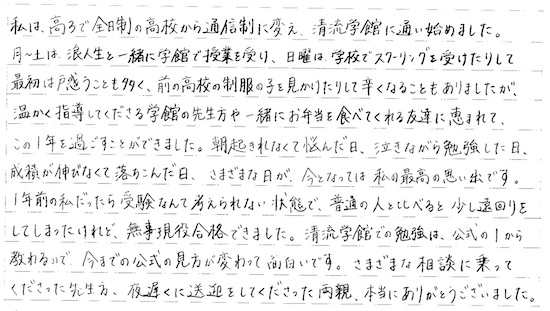 私は、高3で全日制の高校から通信制に変え、清流学館に通い始めました。
月〜土は、浪人生と一緒に学館で授業を受け、日曜は、学校でスクーリングを受けたりして
最初は戸惑うことも多く、前の高校の制服の子を見かけたりして辛くなることもありましたが、
温かく指導してくださる学館の先生方や一緒にお弁当を食べてくれる友達に恵まれて、
この1年を過ごすことができました。朝起きれなくて悩んだ日、泣きながら勉強した日、
成績が伸びなくて落ちこんだ日、さまざまな日が、今となっては私の最高の思い出です。
1年前の私だったら受験なんて考えられない状態で、普通の人とくらべると少し遠回りを
してしまったけれど、無事現役合格できました。清流学館での勉強は、公式の1から
教わるので、今までの公式の見方が変わって面白いです。さまざまな相談に乗って
くださった先生方、夜遅くに送迎をしてくださった両親、本当にありがとうございました。